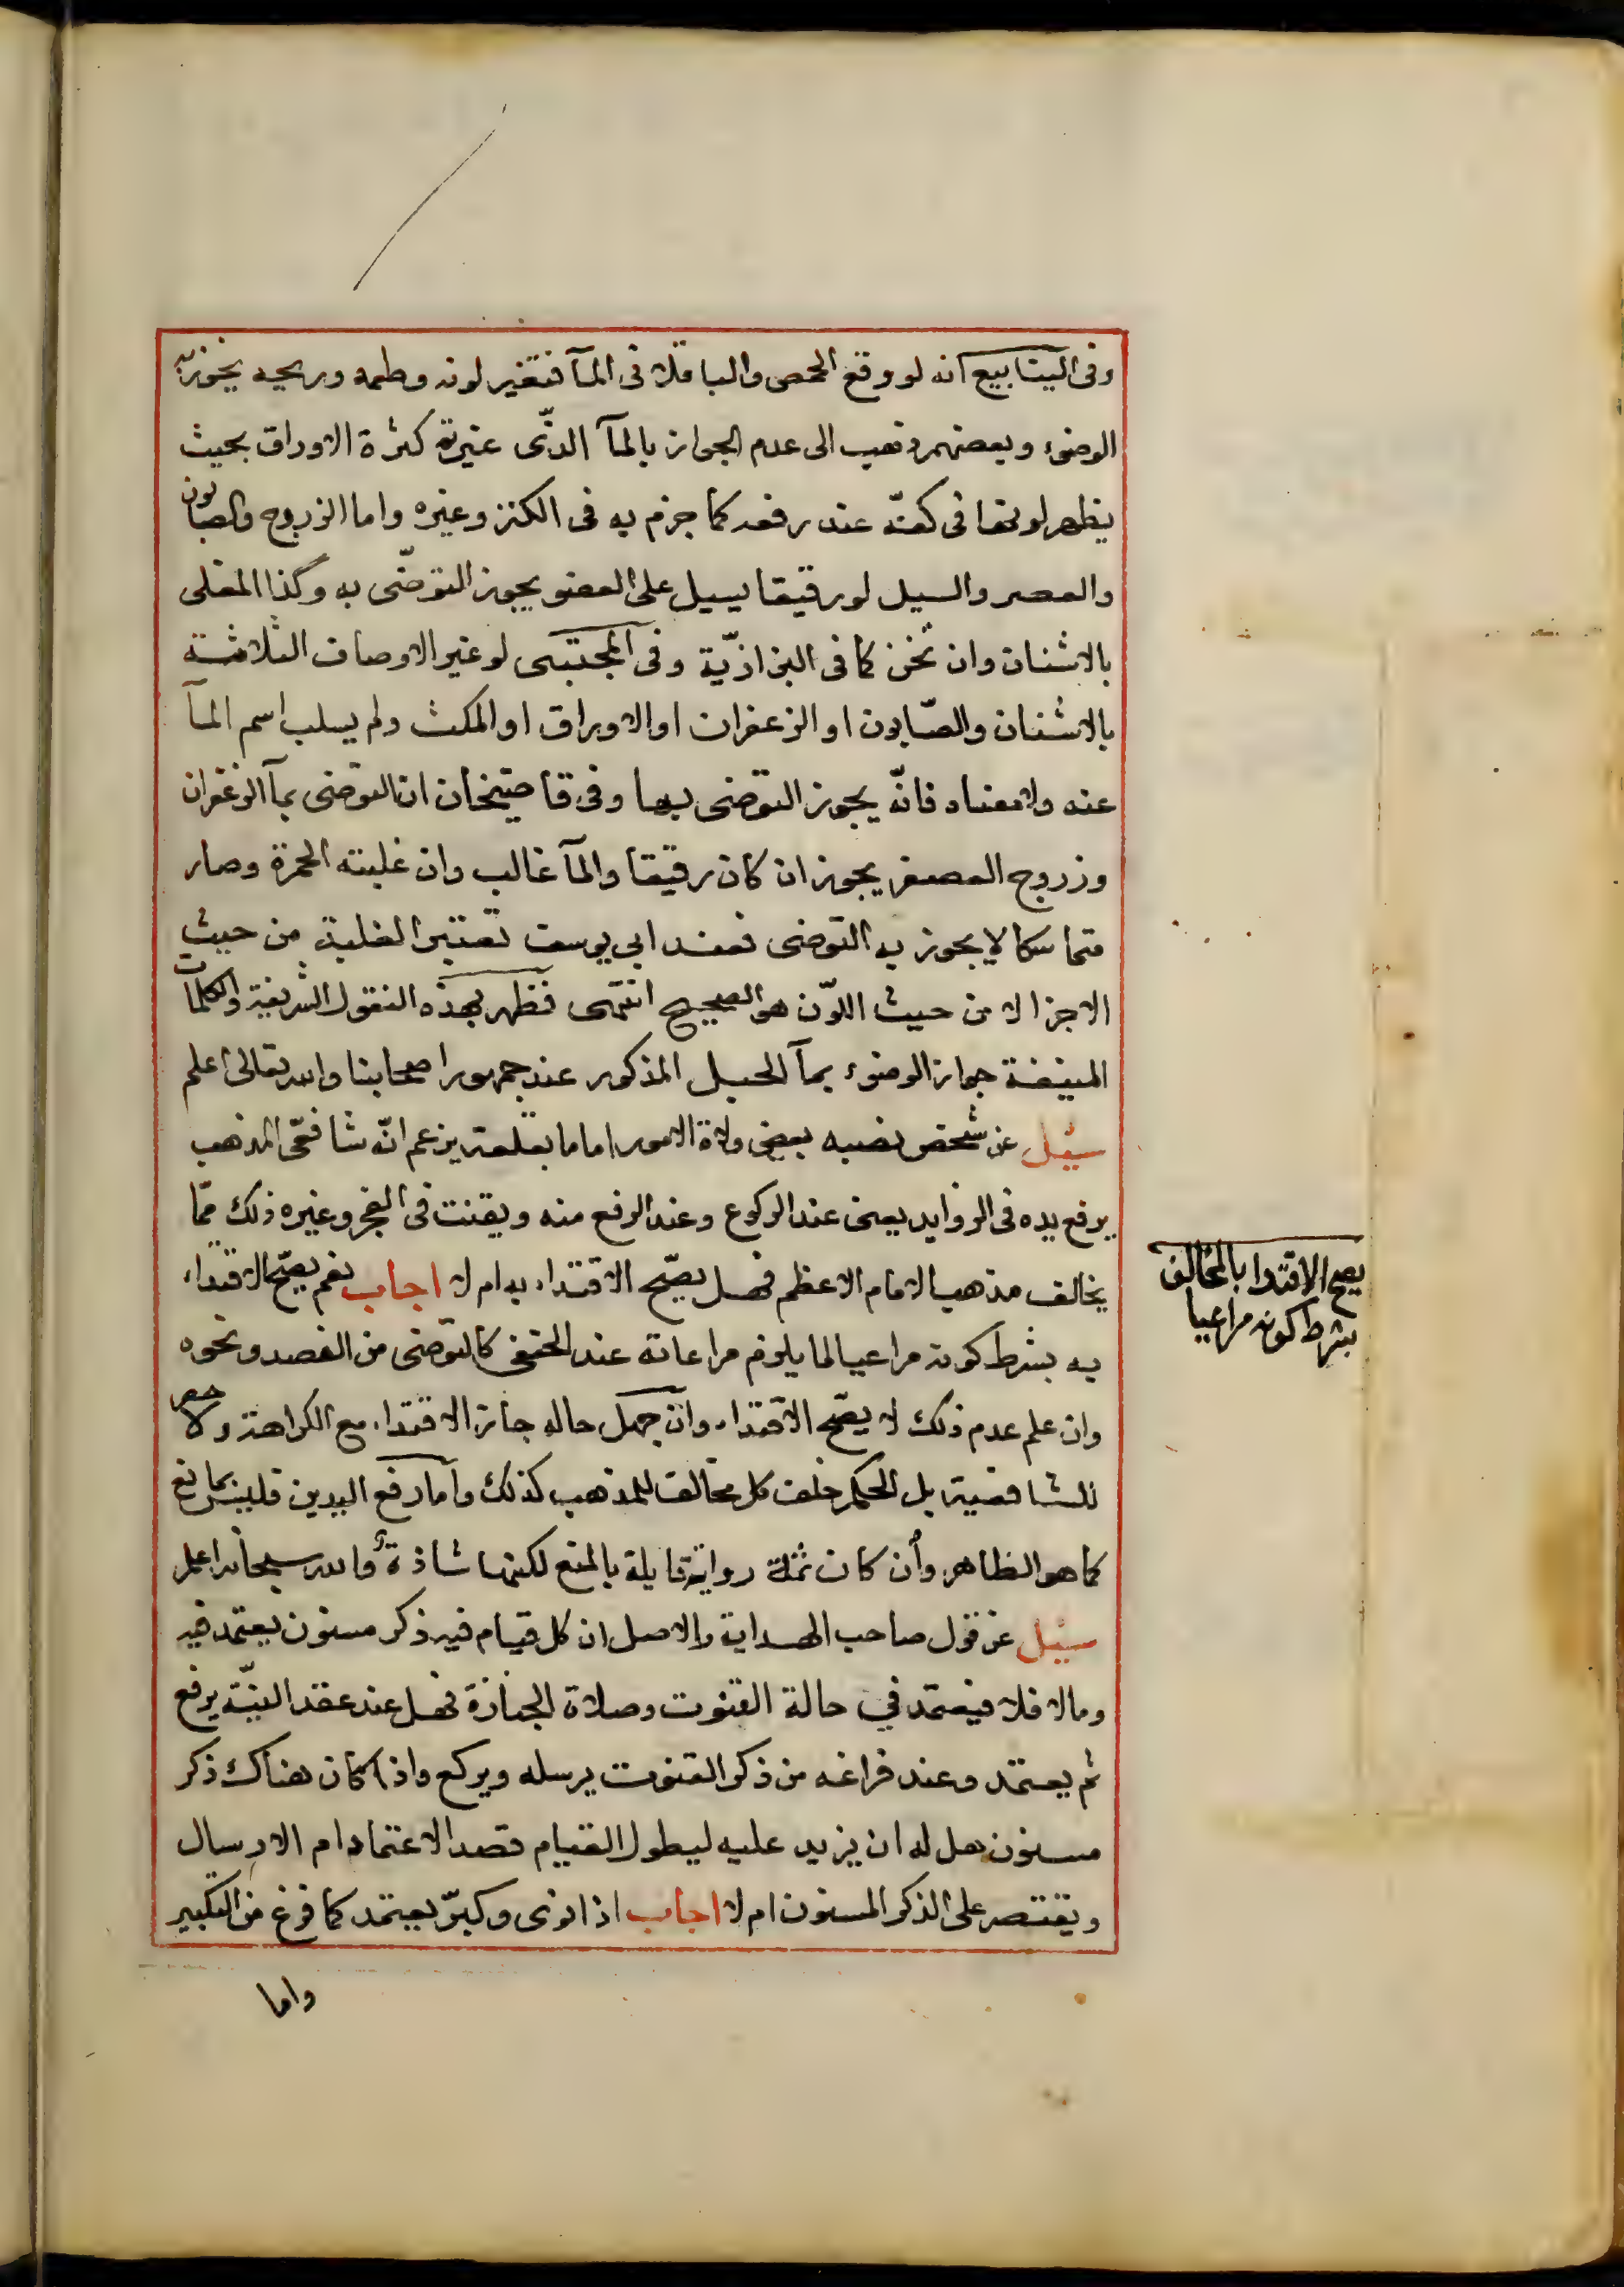 وفى الينابيع انه لو وقع الحمص والباقلا فى المآ فتغير لونه وطعمه وريحه يجوز به
الوضوء وبعضهم ذهب الى عدم الجواز بالمآ الذّى غيرته كثرة الاوراق بحيث
يظهر لونها فى كفّه عند رفعه كما جزم به فى الكنز وغيره واما الزردج والصابون
والعصر والسيل لو رقيقا يسيل على العضو يجوز التوضّى به وكذا المغلى
بالاشنان وان ثخن كما فى البزازيّة وفى المجتبى لو غير الاوصاف الثلاثة
بالاشنان والصّابون او الزعفران او الاوراق او المكث ولم يسلب اسم المآ
عنه ولا معناه فانّه يجوز التوضى بها وفى قاضيخان ان التوضى بمآ الزعفران
وزردج العصفر يجوز ان كان رقيقا والمآ غالب وان غلبته الحمرة وصار
متماسكا لا يجوز به التوضى فعند ابى يوسف تعتبر الغلبة من حيث
الاجزا لا من حيث اللّون هو الصحيح انتهى فظهر بهذه النقول الشريفة والكلمات
المنيفة جواز الوضوء بمآ الحبل المذكور عند جمهور اصحابنا والله تعالى اعلم
سئل عن شخص نصبه بعض ولاة الامور اماما بقلعة يزعم انّه شافعى المذهب
يرفع يده فى الزوايد يعنى عند الركوع وعند الرفع منه ويقنت فى الفجر وغيره ذلك ممّا
يخالف مذهب الامام الاعظم فهل يصّح الاقتداء به ام لا اجاب نعم يصّح الاقتداء
به بشرط كونه مراعيا لما يلزم مراعاته عند الحنفى كالتوضى من الفصد ونحوه
وان علم عدم ذلك لا يصّح الاقتداء وان جهل حاله جاز الاقتداء مع الكراهة ولا خصوصية
للشافعية بل الحكم خلف كل مخالف للمذهب كذلك واما رفع اليدين فليس بمانع
كما هو الظاهر وان كان ثمة رواية قايلة بالمنع لكنها شاذة والله سبحانه اعلم
سئل عن قول صاحب الهداية والاصل ان كل قيام فيه ذكر مسنون يعتمد فيه
وما لا فلا فيعتمد في حالة القنوت وصلاة الجنازة فهل عند عقد النيّة يرفع
ثم يعتمد وعند فراغه من ذكر القنوت يرسله ويركع واذا كان هناك ذكر
مسنون هل له ان يزيد عليه ليطول القيام قصد الاعتماد ام الارسال
ويقتصر على الذكر المسنون ام لا اجاب اذا نوى وكبرّ يعتمد كما فرغ من التكبير
واما
يصح الاقتدا بالمخالف
بشرط كونه مراعيا